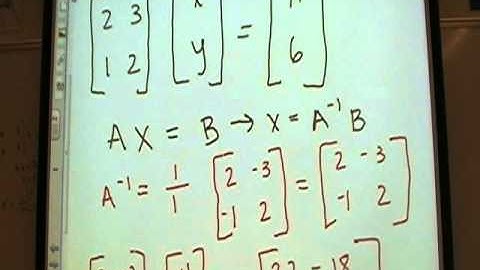 [2 3; 1 2] [x; y] = [11; 6]
AX = B → X = A⁻¹ B
A⁻¹ = 1/1 [2 -3; -1 2] = [2 -3; -1 2]
[22 - 18